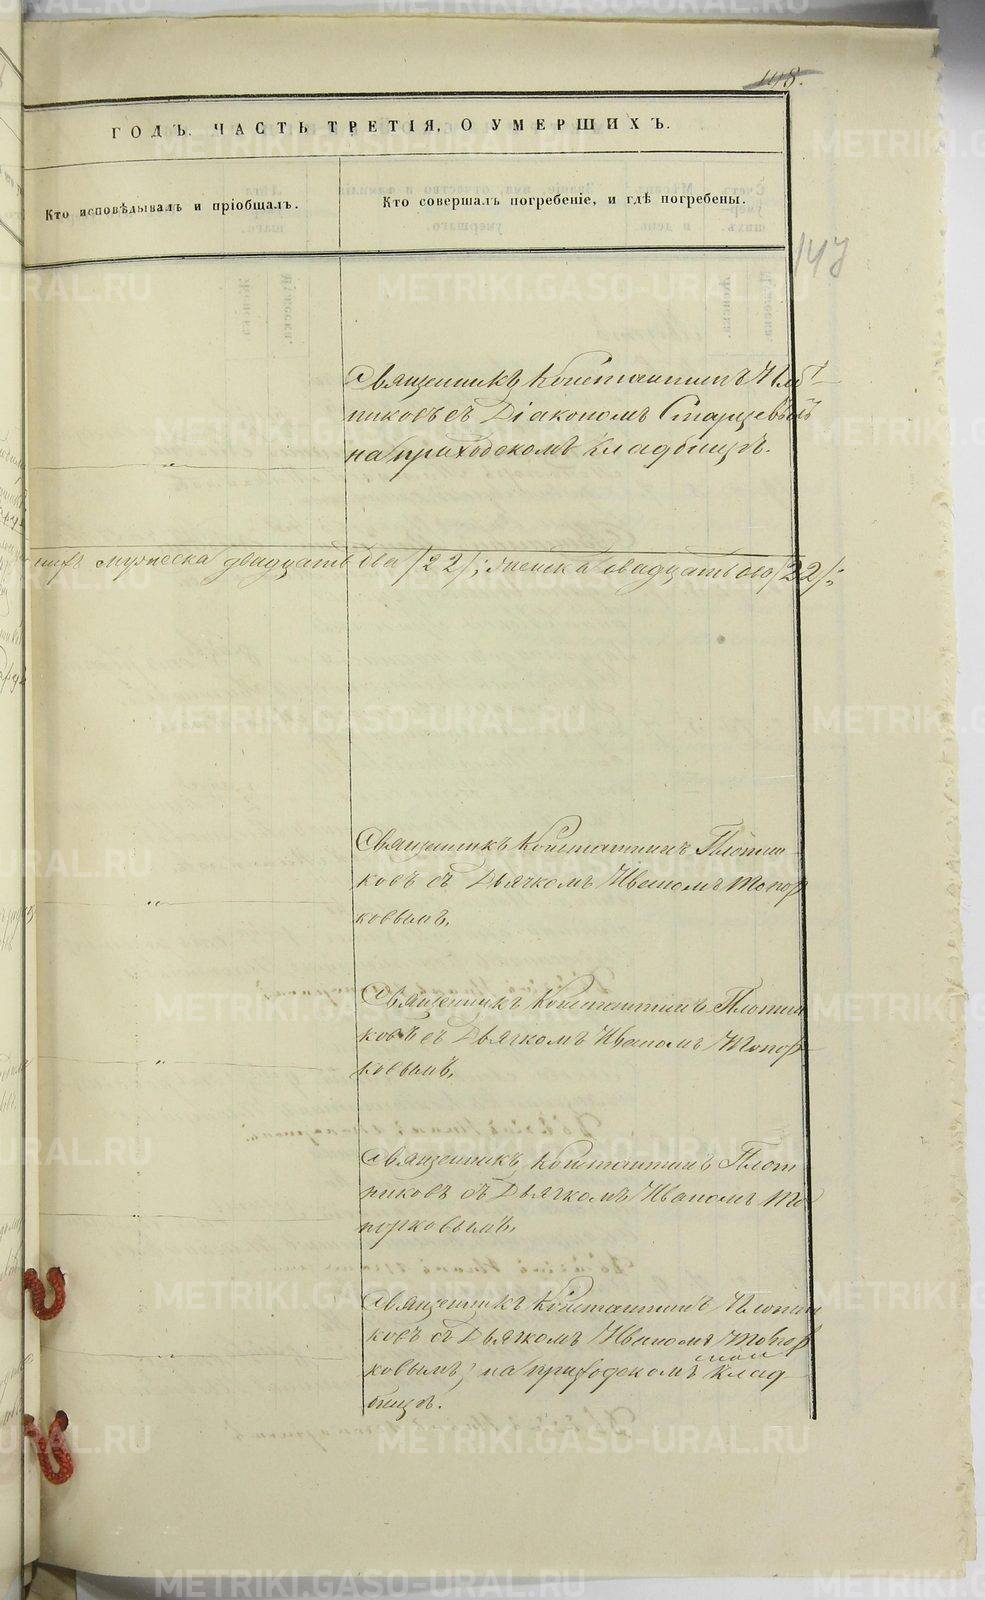 148.
ГОДЪ. ЧАСТЬ ТРЕТІЯ, О УМЕРШИХЪ.
Кто исповѣдывалъ и пріобщалъ.
Кто совершалъ погребеніе, и гдѣ погребены.
147
Священникъ Константинъ Плот-
никовъ съ Діакономъ Старцевымъ
на приходскомъ кладбищѣ.
мужеска двадцать два /22/; женска двадцать два /22/;
Священникъ Константинъ Плотни-
ковъ съ Дьячкомъ Иваномъ Топор
ковымъ.
Священникъ Константинъ Плотни
ковъ съ Дьячкомъ Иваномъ Топор
ковымъ.
Священникъ Константинъ Плот
никовъ съ Дьячкомъ Иваномъ То
порковымъ.
Священникъ Константинъ Плотни
ковъ съ Дьячкомъ Иваномъ Топор
ковымъ, на приходскомъ клад
бищѣ.
METRIKI.GASO-URAL.RU